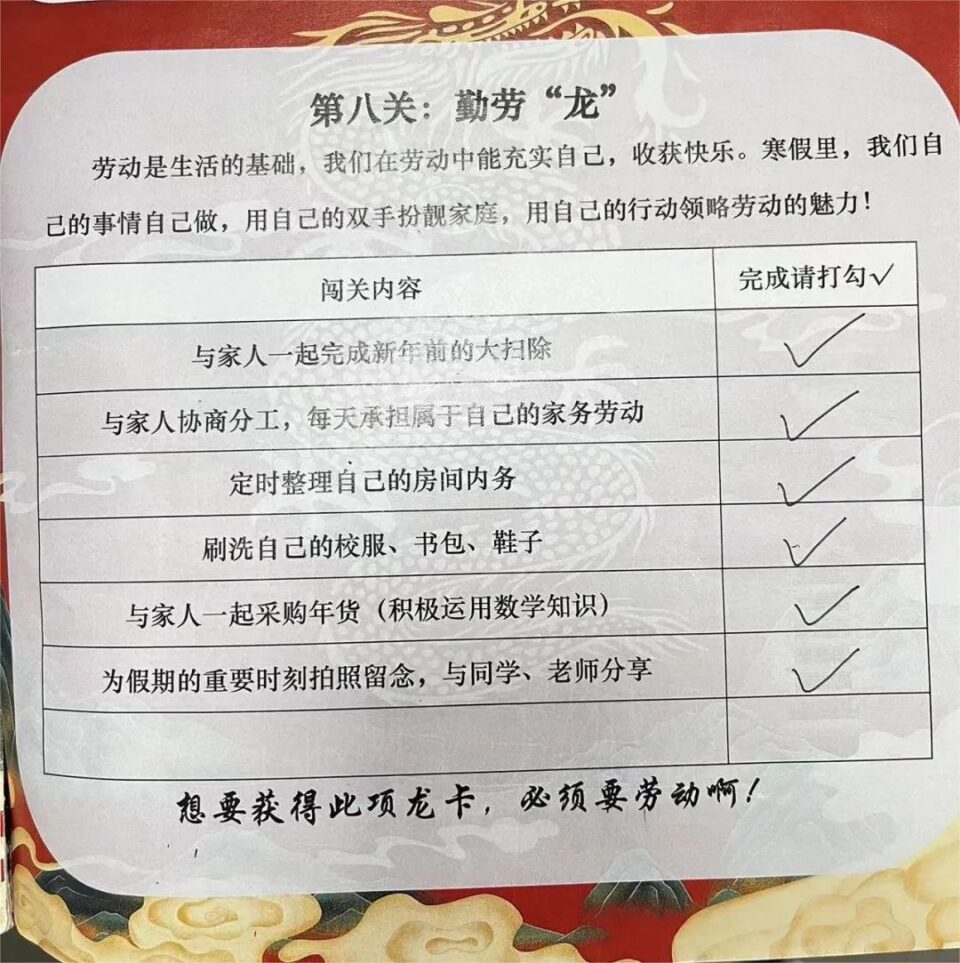 第八关：勤劳“龙”
劳动是生活的基础，我们在劳动中能充实自己，收获快乐。寒假里，我们自
己的事情自己做，用自己的双手扮靓家庭，用自己的行动领略劳动的魅力！
闯关内容 完成请打勾✓
与家人一起完成新年前的大扫除 ✓
与家人协商分工，每天承担属于自己的家务劳动 ✓
定时整理自己的房间内务 ✓
刷洗自己的校服、书包、鞋子 ✓
与家人一起采购年货（积极运用数学知识） ✓
为假期的重要时刻拍照留念，与同学、老师分享 ✓
想要获得此项龙卡，必须要劳动啊！